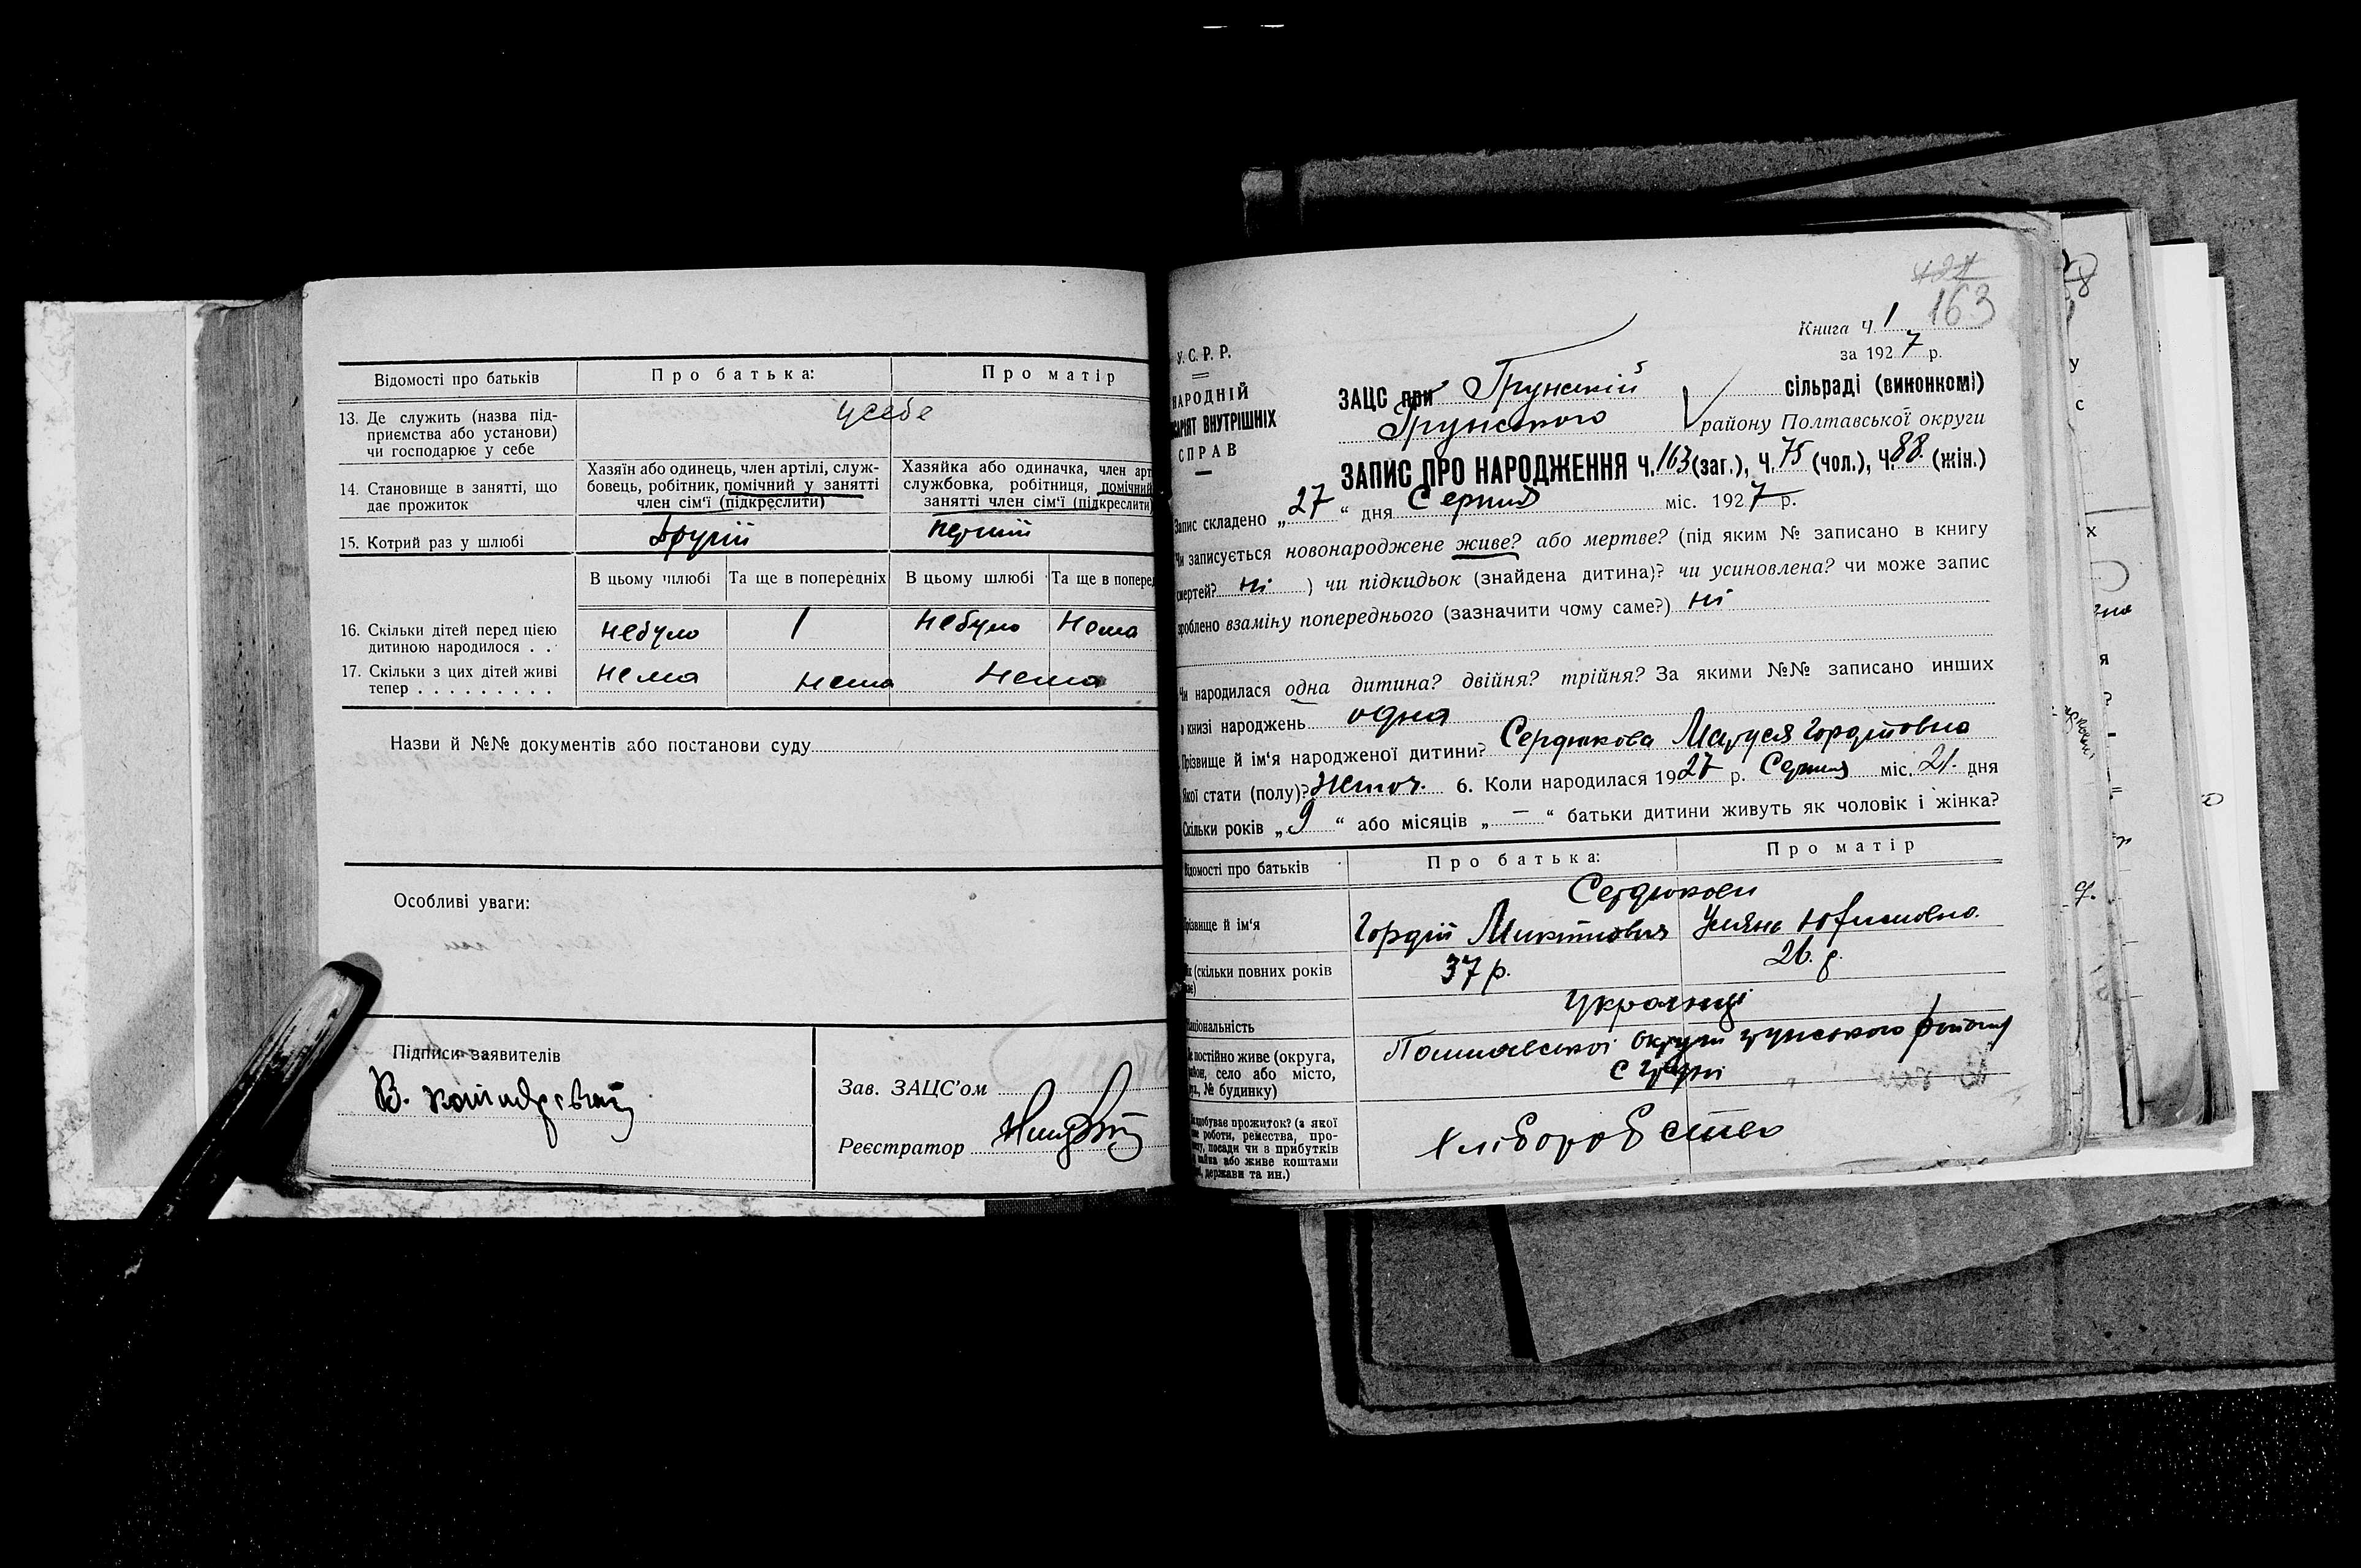 Відомості про батьків Про батька: Про матір
13. Де служить (назва під-
приємства або установи)
чи господарює у себе
усебе
14. Становище в занятті, що
дає прожиток
Хазяїн або одинець, член артілі, служ-
бовець, робітник, помічний у занятті
член сім'ї (підкреслити)
Хазяйка або одиначка, член арт
службовка, робітниця, помічний
занятті член сім'ї (підкреслити)
15. Котрий раз у шлюбі другій перший
В цьому шлюбі Та ще в попередніх В цьому шлюбі Та ще в поперед
16. Скільки дітей перед цією
дитиною народилося . .
небуло 1 небуло нема
17. Скільки з цих дітей живі
тепер . . . . . . . . .
нема нема нема
Назви й №№ документів або постанови суду
Особливі уваги:
Підписи заявителів
В.
Зав. ЗАЦС'ом
Реєстратор
121
163
Книга Ч. 1
за 1927 р.
У.С.Р.Р.
НАРОДНІЙ
САРІЯТ ВНУТРІШНІХ
СПРАВ
ЗАЦС при Грунській сільраді (виконкомі)
Грунського району Полтавської округи
ЗАПИС ПРО НАРОДЖЕННЯ Ч. 163 (заг.), Ч. 75 (чол.), Ч. 88 (жін.)
Запис складено „27“ дня Серпня міс. 1927 р.
Чи записується новонароджене живе? або мертве? (під яким № записано в книгу
смертей? ні ) чи підкидьок (знайдена дитина)? чи усиновлена? чи може запис
зроблено взаміну попереднього (зазначити чому саме?) ні
Чи народилася одна дитина? двійня? трійня? За якими №№ записано инших
в книзі народжень одна
Прізвище й ім'я народженої дитини? Сердюкова Маруся Гордіївна
Якої стати (полу)? Жіноч. 6. Коли народилася 1927 р. Серпня міс. 21. дня
Скільки років „9“ або місяців „—“ батьки дитини живуть як чоловік і жінка?
Відомості про батьків Про батька: Про матір
Сердюкови
Прізвище й ім'я Гордій Микитович Уляна Юхимовна
(скільки повних років
37 р. 26. р.
Національність Українці
Де постійно живе (округа,
район, село або місто,
№ будинку)
Полтавської округи грунського району
с Груні
здобуває прожиток? (з якої
роботи, ремества, про-
посади чи з прибутків
або живе коштами
держави та ин.)
хліборобство